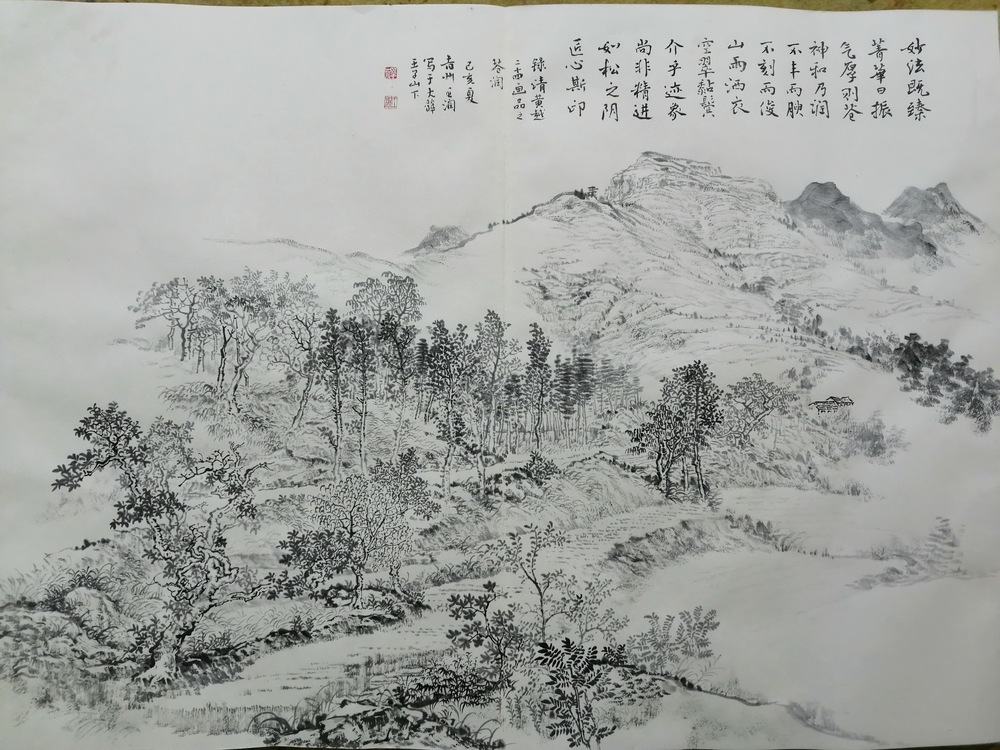 妙法既臻
菁華日振
气厚则苍
神和乃润
不丰而腴
不刻而俊
山雨洒衣
空翠黏鬓
介乎迹象
尚非精进
如松之阴
匠心斯印
録清黄越
二十四画品之
苍润
己亥夏
青州润
写于大薛
王子山下